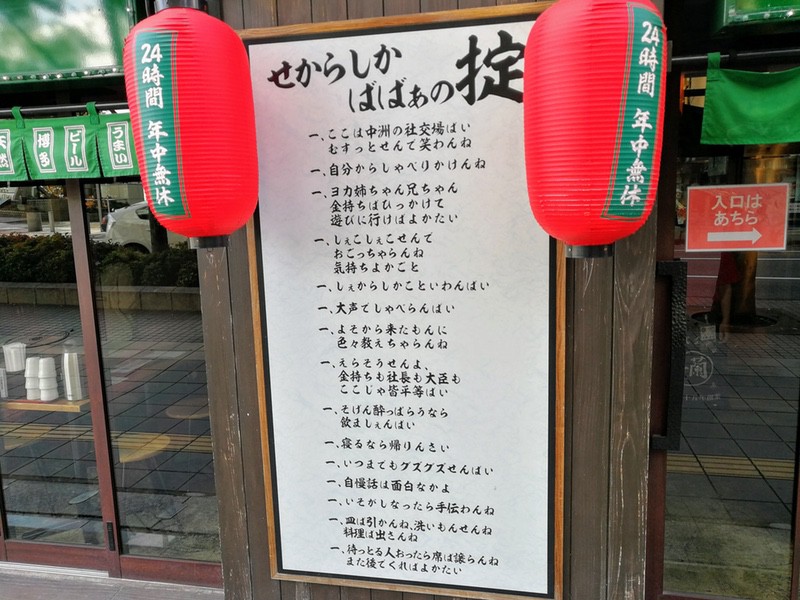 せからしか
ばばぁの掟
一、ここは中洲の社交場ばい
むすっとせんで笑わんね
一、自分からしゃべりかけんね
一、ヨカ姉ちゃん兄ちゃん
金持ちばひっかけて
遊びに行けばよかたい
一、しぇこしぇこせんで
おごっちゃらんね
気持ちよかこと
一、しぇからしかこといわんばい
一、大声でしゃべらんばい
一、よそから来たもんに
色々教えちゃらんね
一、えらそうせんよ、
金持ちも社長も大臣も
ここじゃ皆平等ばい
一、そげん酔っぱらうなら
飲ましぇんばい
一、寝るなら帰りんさい
一、いつまでもグズグズせんばい
一、自慢話は面白なかよ
一、いそがしなったら手伝わんね
一、皿ば引かんね、洗いもんせんね
料理ば出さんね
一、待っとる人おったら席ば譲らんね
また後でくればよかたい
24時間 年中無休
24時間 年中無休
博多
ビール
うまい
入口は
あちら